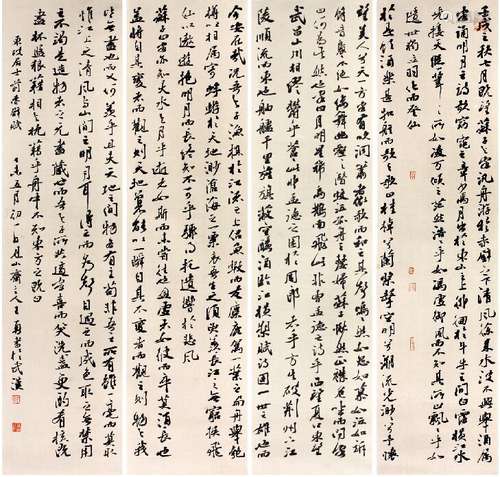 壬戌之秋七月既望蘇子與客汎舟游於赤壁之下清風徐來水波不興舉酒屬
客誦明月之詩歌窈窕之章少焉月出於東山之上徘徊於斗牛之間白露橫江水
光接天縱一葦之所如凌萬頃之茫然浩浩乎如馮虛御風而不知其所止飄飄乎如
遺世獨立羽化而登仙
於是飲酒樂甚扣舷而歌之歌曰桂棹兮蘭槳擊空明兮溯流光渺渺兮予懷
望美人兮天一方客有吹洞簫者倚歌而和之其聲嗚嗚然如怨如慕如泣如訴
餘音嫋嫋不絕如縷舞幽壑之潛蛟泣孤舟之嫠婦蘇子愀然正襟危坐而問客
曰何為其然也客曰月明星稀烏鵲南飛此非曹孟德之詩乎西望夏口東望
武昌山川相繆鬱乎蒼蒼此非孟德之困於周郎者乎方其破荊州下江
陵順流而東也舳艫千里旌旗蔽空釃酒臨江橫槊賦詩固一世之雄也而
今安在哉況吾與子漁樵於江渚之上侶魚蝦而友麋鹿駕一葉之扁舟舉匏
樽以相屬寄蜉蝣於天地渺滄海之一粟哀吾生之須臾羨長江之無窮挾飛
仙以遨遊抱明月而長終知不可乎驟得託遺響於悲風
蘇子曰客亦知夫水與月乎逝者如斯而未嘗往也盈虛者如彼而卒莫消長也
蓋將自其變者而觀之則天地曾不能以一瞬自其不變者而觀之則物與我
皆無盡也而又何羨乎且夫天地之間物各有主苟非吾之所有雖一毫而莫取
惟江上之清風與山間之明月耳得之而為聲目遇之而成色取之無禁用
之不竭是造物者之無盡藏也而吾與子之所共適客喜而笑洗盞更酌肴核既
盡杯盤狼藉相與枕藉乎舟中不知東方之既白
東坡居士前赤壁賦 五月初一日 山齋 王 書於武漢